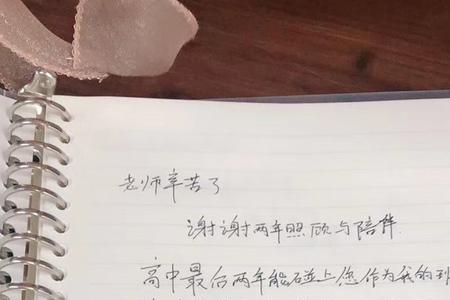 老师辛苦了
谢谢两年照顾与陪伴.
高中最后两年能碰上您作为我的班